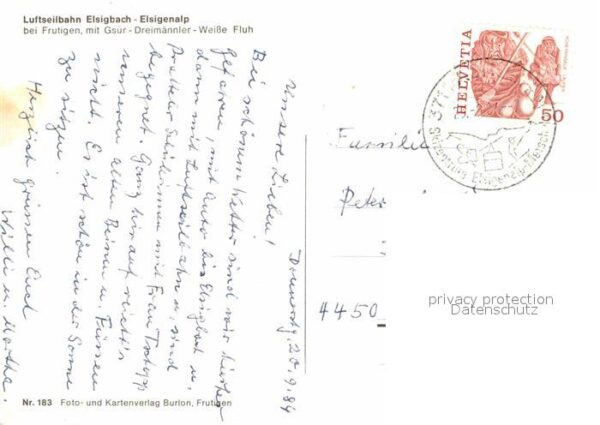 Luftseilbahn Elsigbach - Elsigenalp
bei Frutigen, mit Gsur - Dreimännler - Weiße Fluh
Donnerstg, 20.9.84
Unsere Lieben!
Bei schönem Wetter sind wir hierher
gefahren, mit Auto bis Elsigbach u.
dann mit Luftseilbahn u. sind
Prattler Schülerinnen mit Frau Tschopp
begegnet. Ganz hinauf reicht's
unseren alten Beinen u. Füssen
nicht. Es ist schön in der Sonne
zu sitzen.
Herzlich grüssen Euch
Willi u. Martha.
HELVETIA
50
Elsigenalp-Metsch
Familie
Peter
4450
privacy protection
Datenschutz
Nr. 183 Foto- und Kartenverlag Burlon, Frutigen